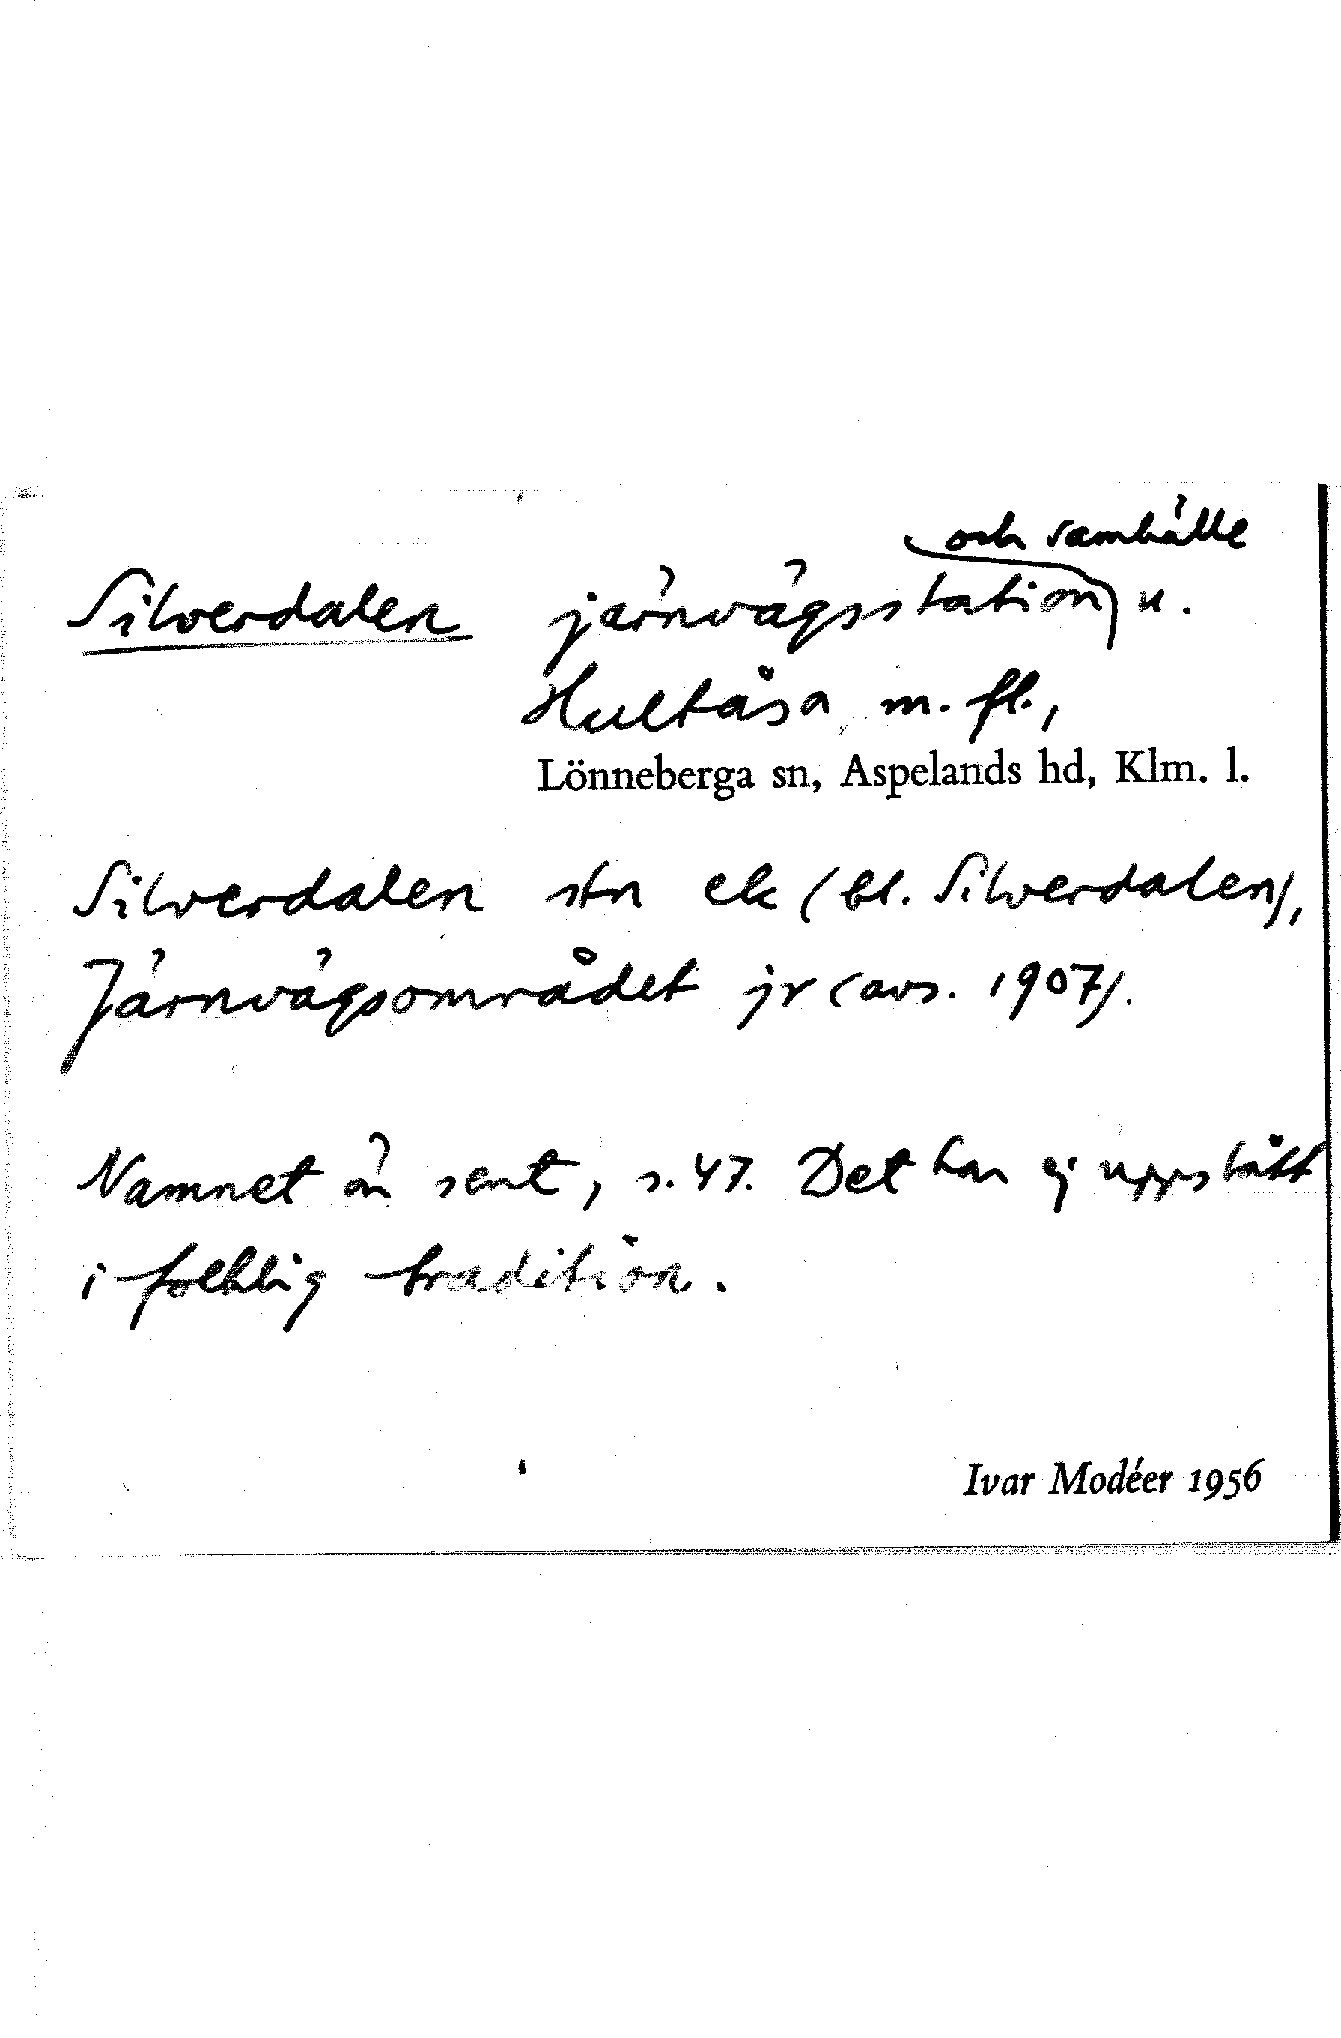 och samhälle
Silverdalen järnvägsstation u.
Hultåsa m. fl.,
Lönneberga sn, Aspelands hd, Klm. l.
Silverdalen stn ek (bl. Silverdalen),
Järnvägsområdet jr (avs. 1907).
Namnet är sent, s. 47. Det har ej uppstått
i folklig tradition.
Ivar Modéer 1956